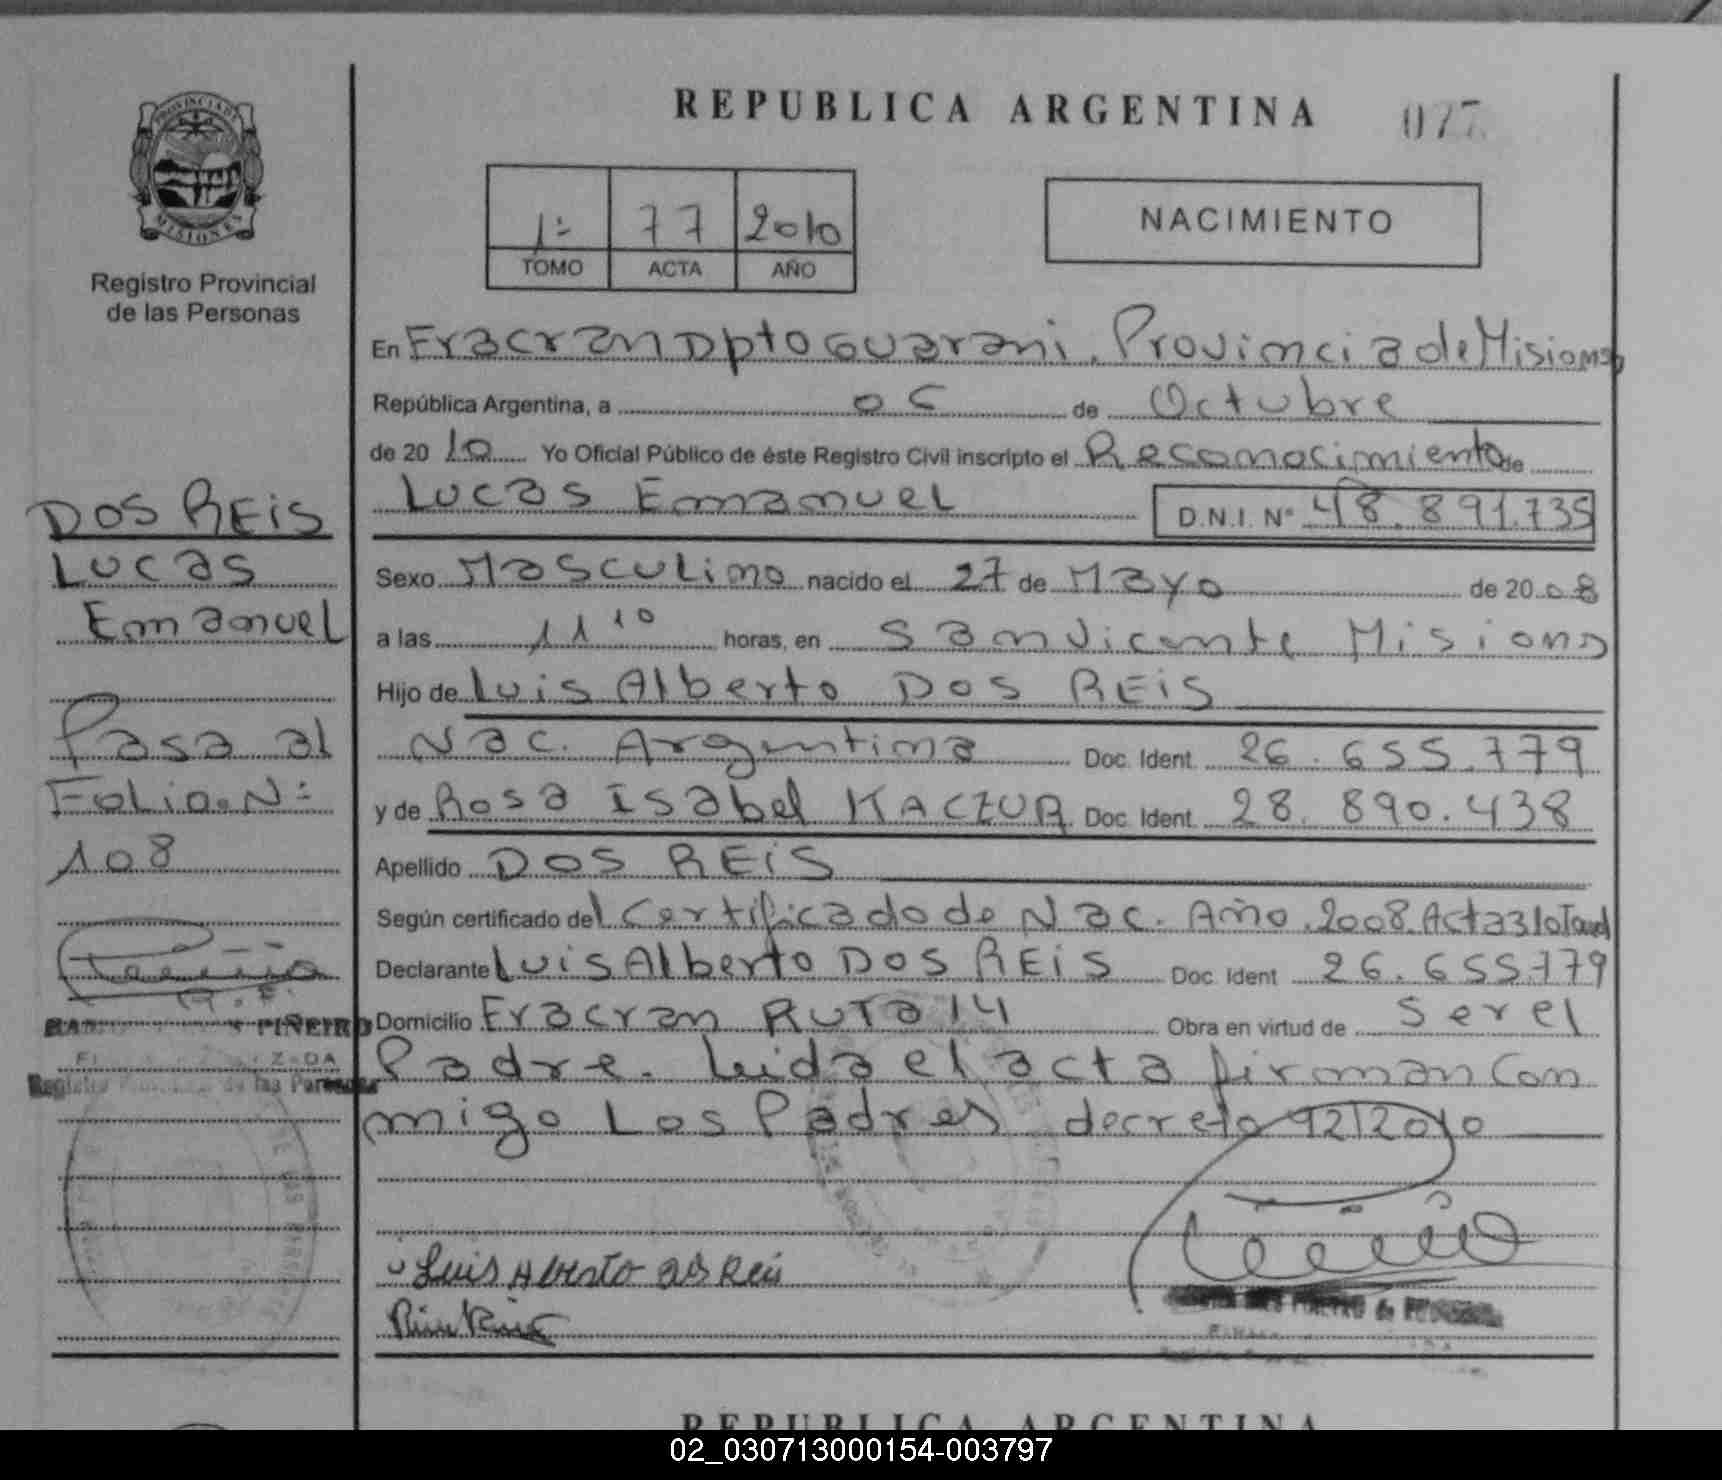 REPUBLICA ARGENTINA 077
PROVINCIA DE
MISIONES
Registro Provincial
de las Personas
1º 77 2010
TOMO ACTA AÑO
NACIMIENTO
En Fracran Dpto Guarani. Provincia de Misiones
República Argentina, a 05 de Octubre
de 2010 Yo Oficial Público de éste Registro Civil inscripto el Reconocimiento de
Lucas Emanuel D.N.I. Nº 48.891.735
Sexo Masculino nacido el 27 de Mayo de 2008
a las 11 10 horas, en San Vicente Misiones
Hijo de Luis Alberto DOS REIS
Nac. Argentina Doc. Ident. 26.655.779
y de Rosa Isabel KACZUR Doc. Ident. 28.890.438
Apellido DOS REIS
Según certificado del Certificado de Nac. Año 2008. Acta 310
Declarante Luis Alberto DOS REIS Doc. Ident 26.655.779
Domicilio Fracran Ruta 14 Obra en virtud de Ser el
Padre. Leida el acta firman Con
migo Los Padres decreto 92/2010
Luis Alberto dos Reis
DOS REIS
Lucas
Emanuel
Pasa al
Folio. Nº
108
PIÑEIRO
Registro de las Personas
REPUBLICA ARGENTINA
02_030713000154-003797